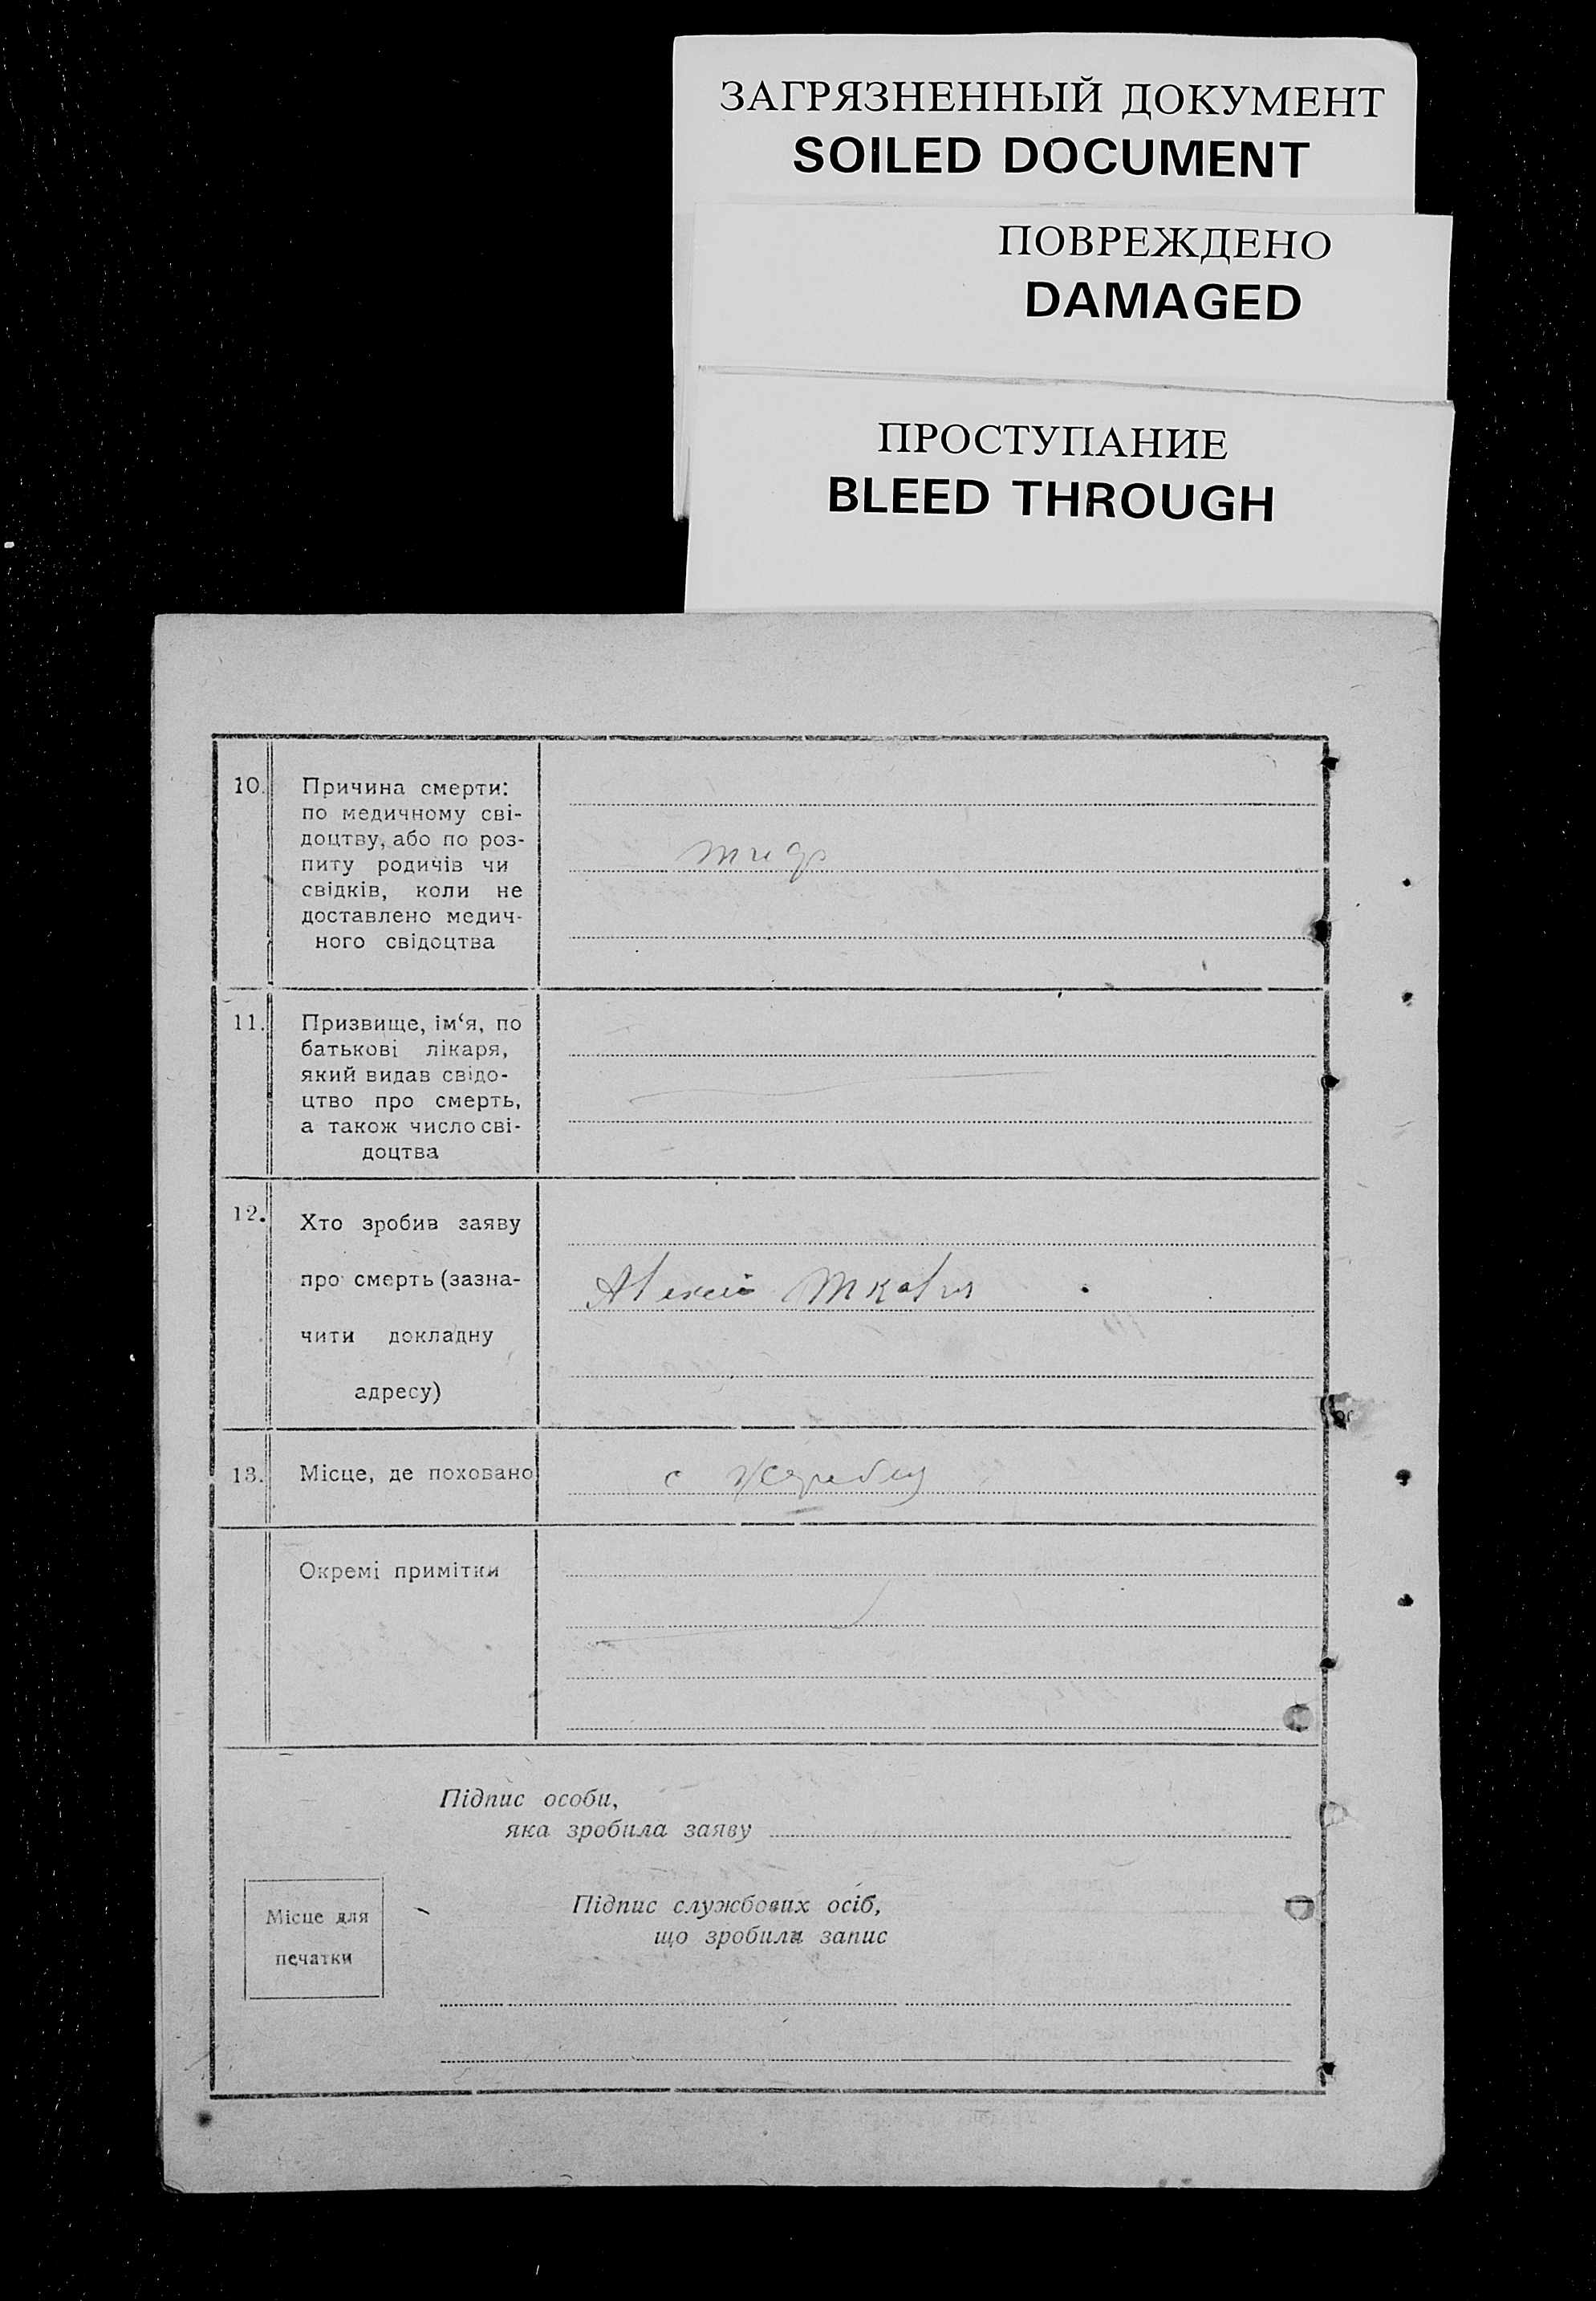 ЗАГРЯЗНЕННЫЙ ДОКУМЕНТ
SOILED DOCUMENT
ПОВРЕЖДЕНО
DAMAGED
ПРОСТУПАНИЕ
BLEED THROUGH
10. Причина смерти:
по медичному сві-
доцтву, або по роз-
питу родичів чи
свідків, коли не
доставлено медич-
ного свідоцтва
тиф
11. Призвище, ім‘я, по
батькові лікаря,
який видав свідо-
цтво про смерть,
а також число сві-
доцтва
12. Хто зробив заяву
про смерть (зазна-
чити докладну
адресу)
Алексій
13. Місце, де поховано
с
Окремі примітки
Підпис особи,
яка зробила заяву
Місце для
печатки
Підпис службових осіб,
що зробили запис